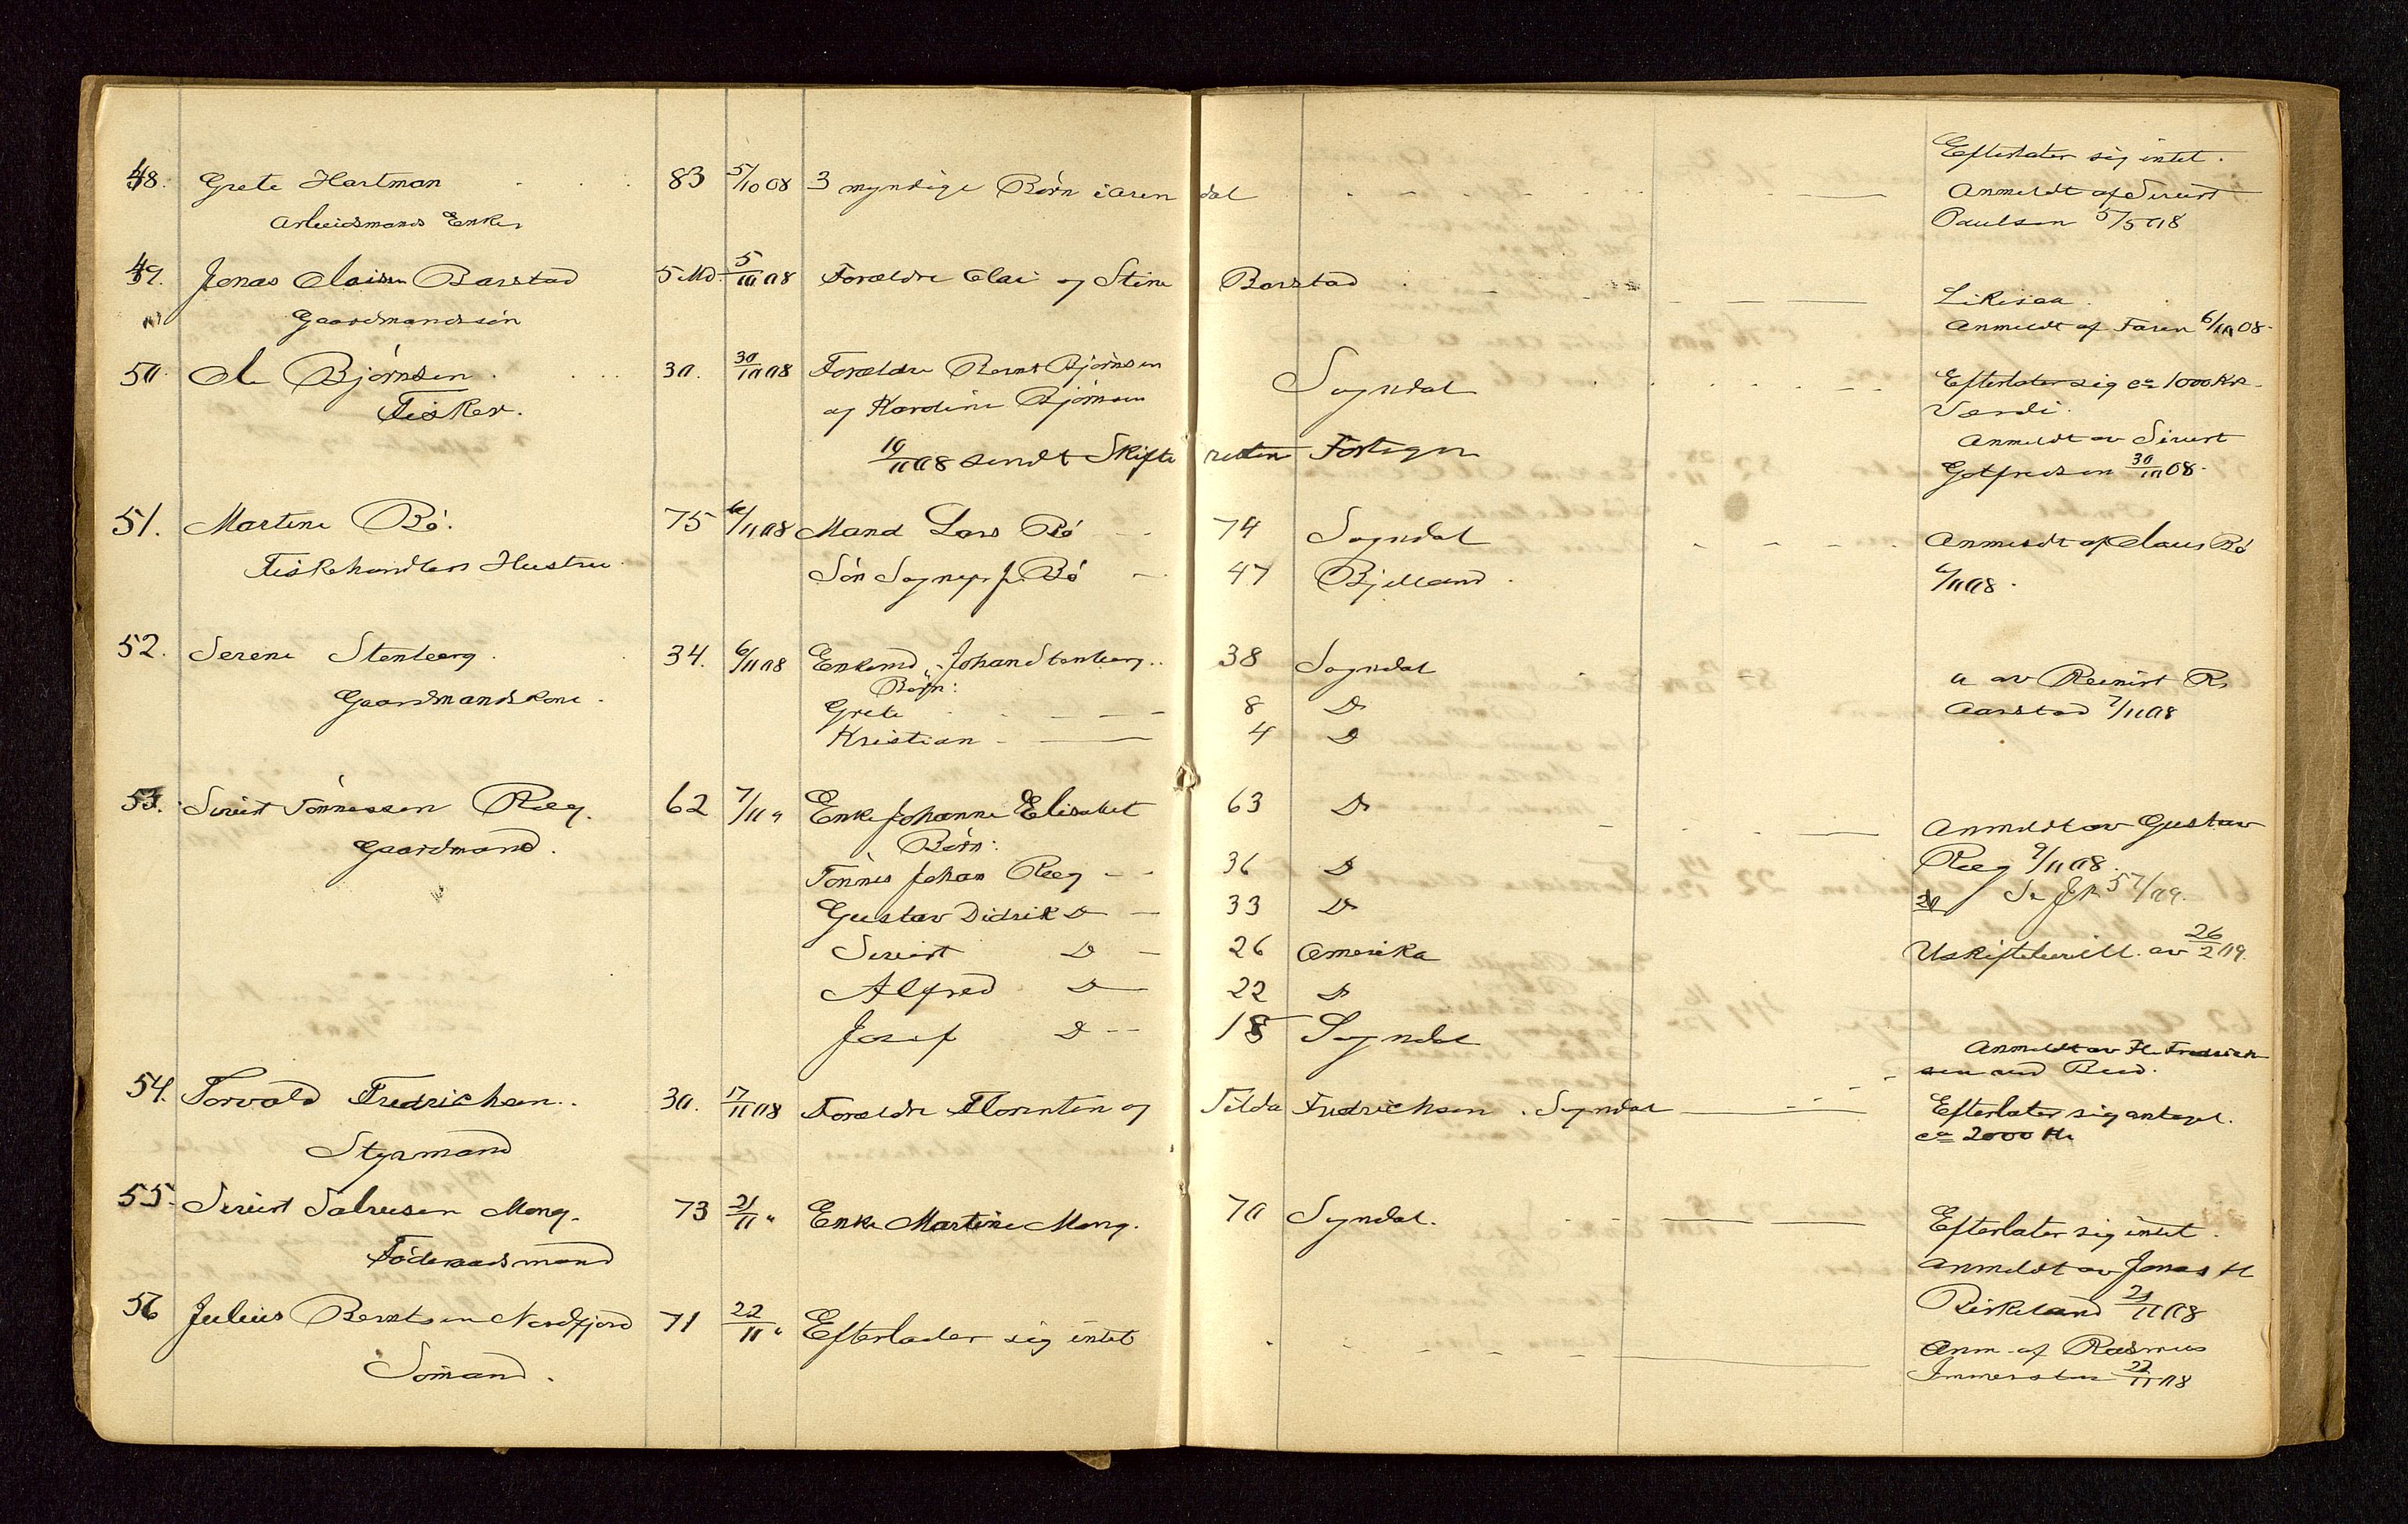 48. Grete Hartman 83 5/10 08 3 myndige Børn i Arendal Efterlater sig intet.
Arbeidsmands Enke Anmeldt af Sivert
Paulsen 5/5 08
49. Jonas Olaisen Barstad 5 Md. 5/10 08 Forældre Olai og Stine Barstad Likesaa.
Gaardmandssøn Anmeldt af Faren 6/10 08.
50. Ole Bjørnsen 30. 30/10 08 Forældre Bernt Bjørnsen Sogndal Efterlater sig ca 1000 Kr.
Fisker. og Kardine Bjørnsen Værdi.
10/11 08 sendt Skifteretten Anmeldt av Sivert
Gotfredsen 30/10 08.
51. Martine Bø. 75 6/11 08 Mand Lars Bø 74 Sogndal Anmeldt af Claus Bø
Fiskehandlers Hustru Søn Sognepr J. Bø 47 Bjelland. 6/11 08.
52. Serene Stenberg. 34. 6/11 08 Enkemd. Johan Stenberg 38 Sogndal
Gaardmandskone. Børn: a av Reinert R.
Grete 8 Do Aarstad 7/11 08
Kristian 4 Do
53. Sivert Tønnessen Reeg. 62 7/11 " Enke Johanne Elisabet 63 Do Anmeldt av Gustav
Gaardmand. Børn: Reeg 9/11 08.
Tønnes Johan Reeg 36 Do
Gustav Didrik Do 33 Do Se Jr 57/09.
Sivert Do 26 Amerika Uskiftebevill. av 26/2 09.
Alfred Do 22 Do
Josef Do 18 Sogndal
54. Torvald Fredrichsen 30. 17/11 08 Forældre Florentin og Tilda Fredrichsen. Sogndal Anmeldt av Fl. Fredrichsen
Styrmand Efterlater sig antagel.
ca 2000 Kr
55. Sivert Salvesen Mong. 73 21/11 " Enke Martine Mong. 70 Sogndal. Efterlater sig intet.
Føderaadsmand Anmeldt av Jonas H
Birkeland 21/11 08
56 Julius Berntsen Nordfjord 71 22/11 " Efterlader sig intet Anm. af Rasmus
Sømand. 22/11 08